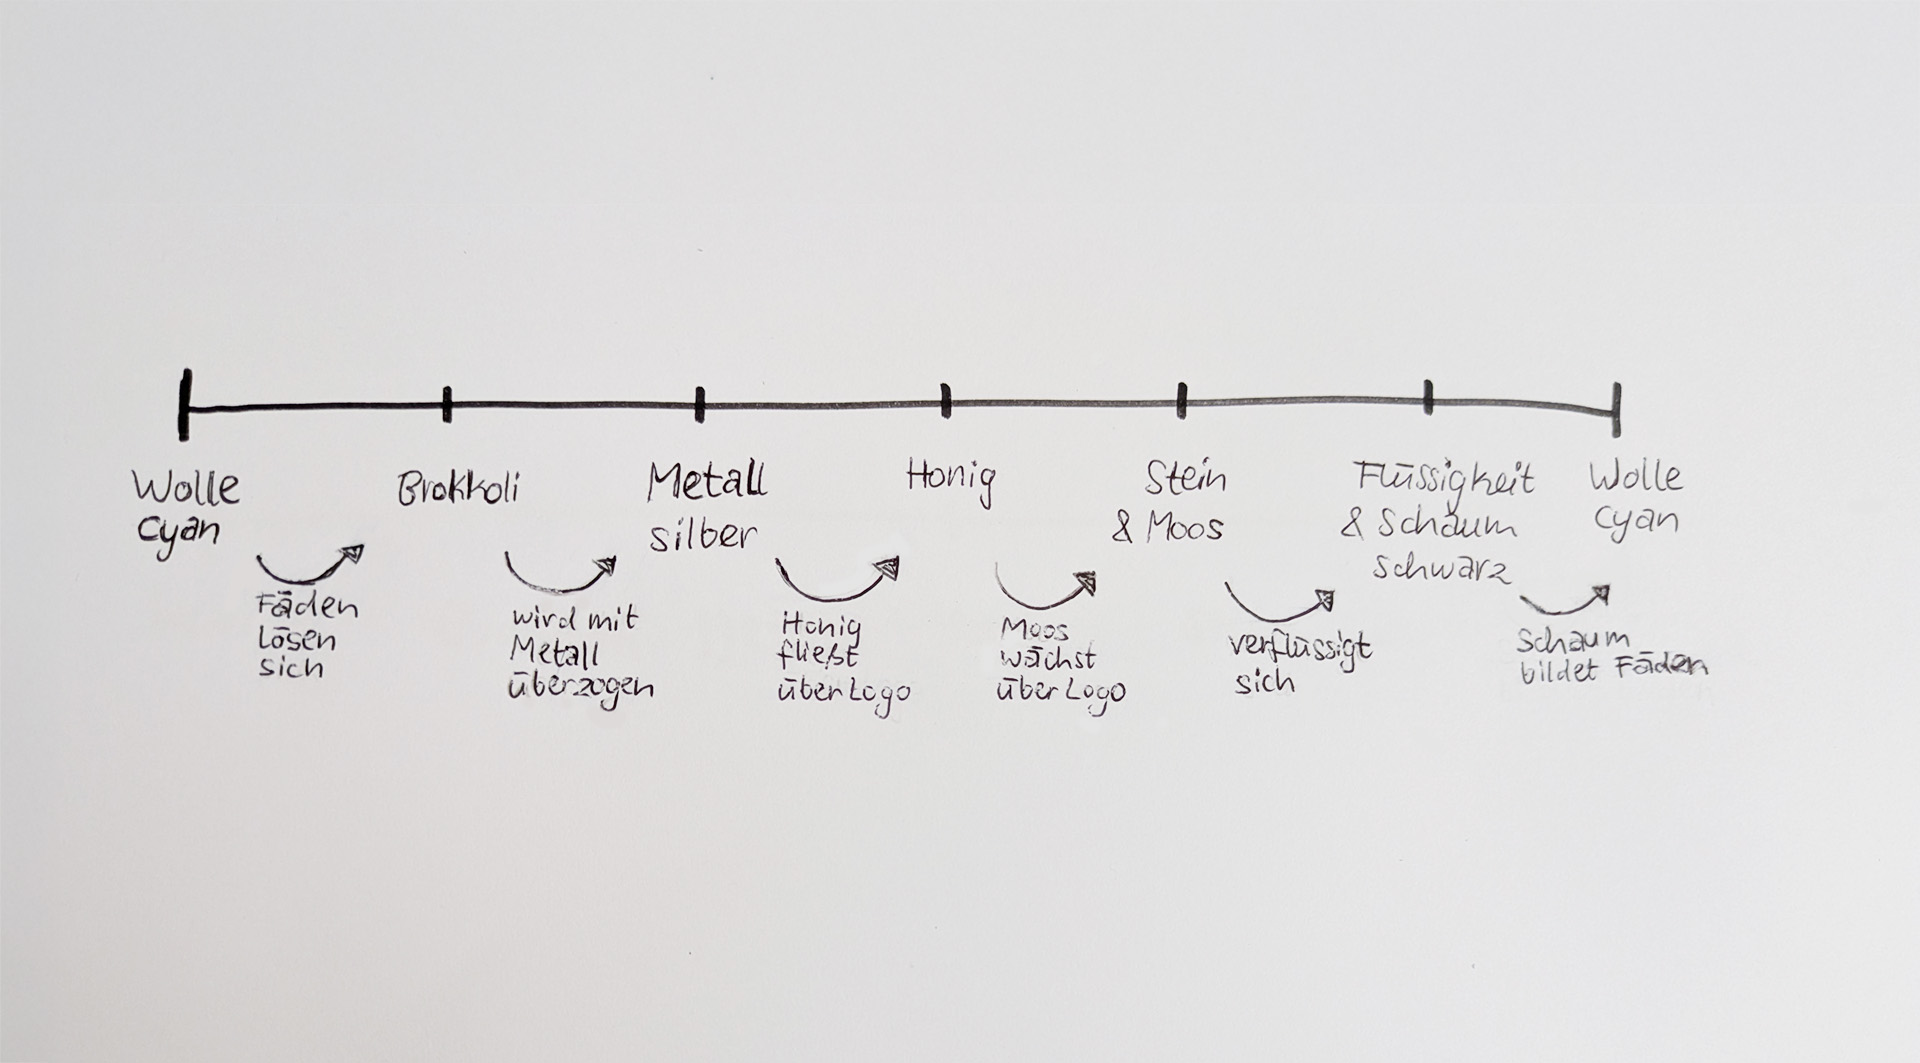 Wolle
Cyan
Brokkoli
Metall
silber
Honig
Stein
& Moos
Flüssigkeit
& Schaum
schwarz
Wolle
Cyan
Fäden
Lösen
sich
wird mit
Metall
überzogen
Honig
fließt
über Logo
Moos
wächst
über Logo
verflüssigt
sich
Schaum
bildet Fäden